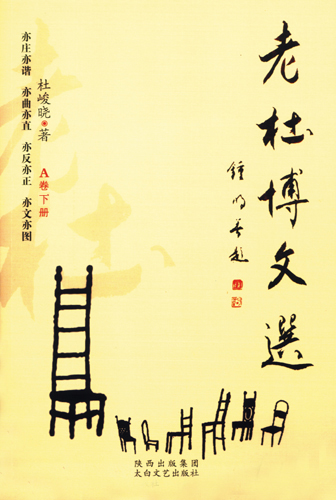 老杜博文選
鍾明善题
杜峻晓 著
A卷下册
亦庄亦谐 亦曲亦直 亦反亦正 亦文亦图
老杜
陕西出版集团
太白文艺出版社